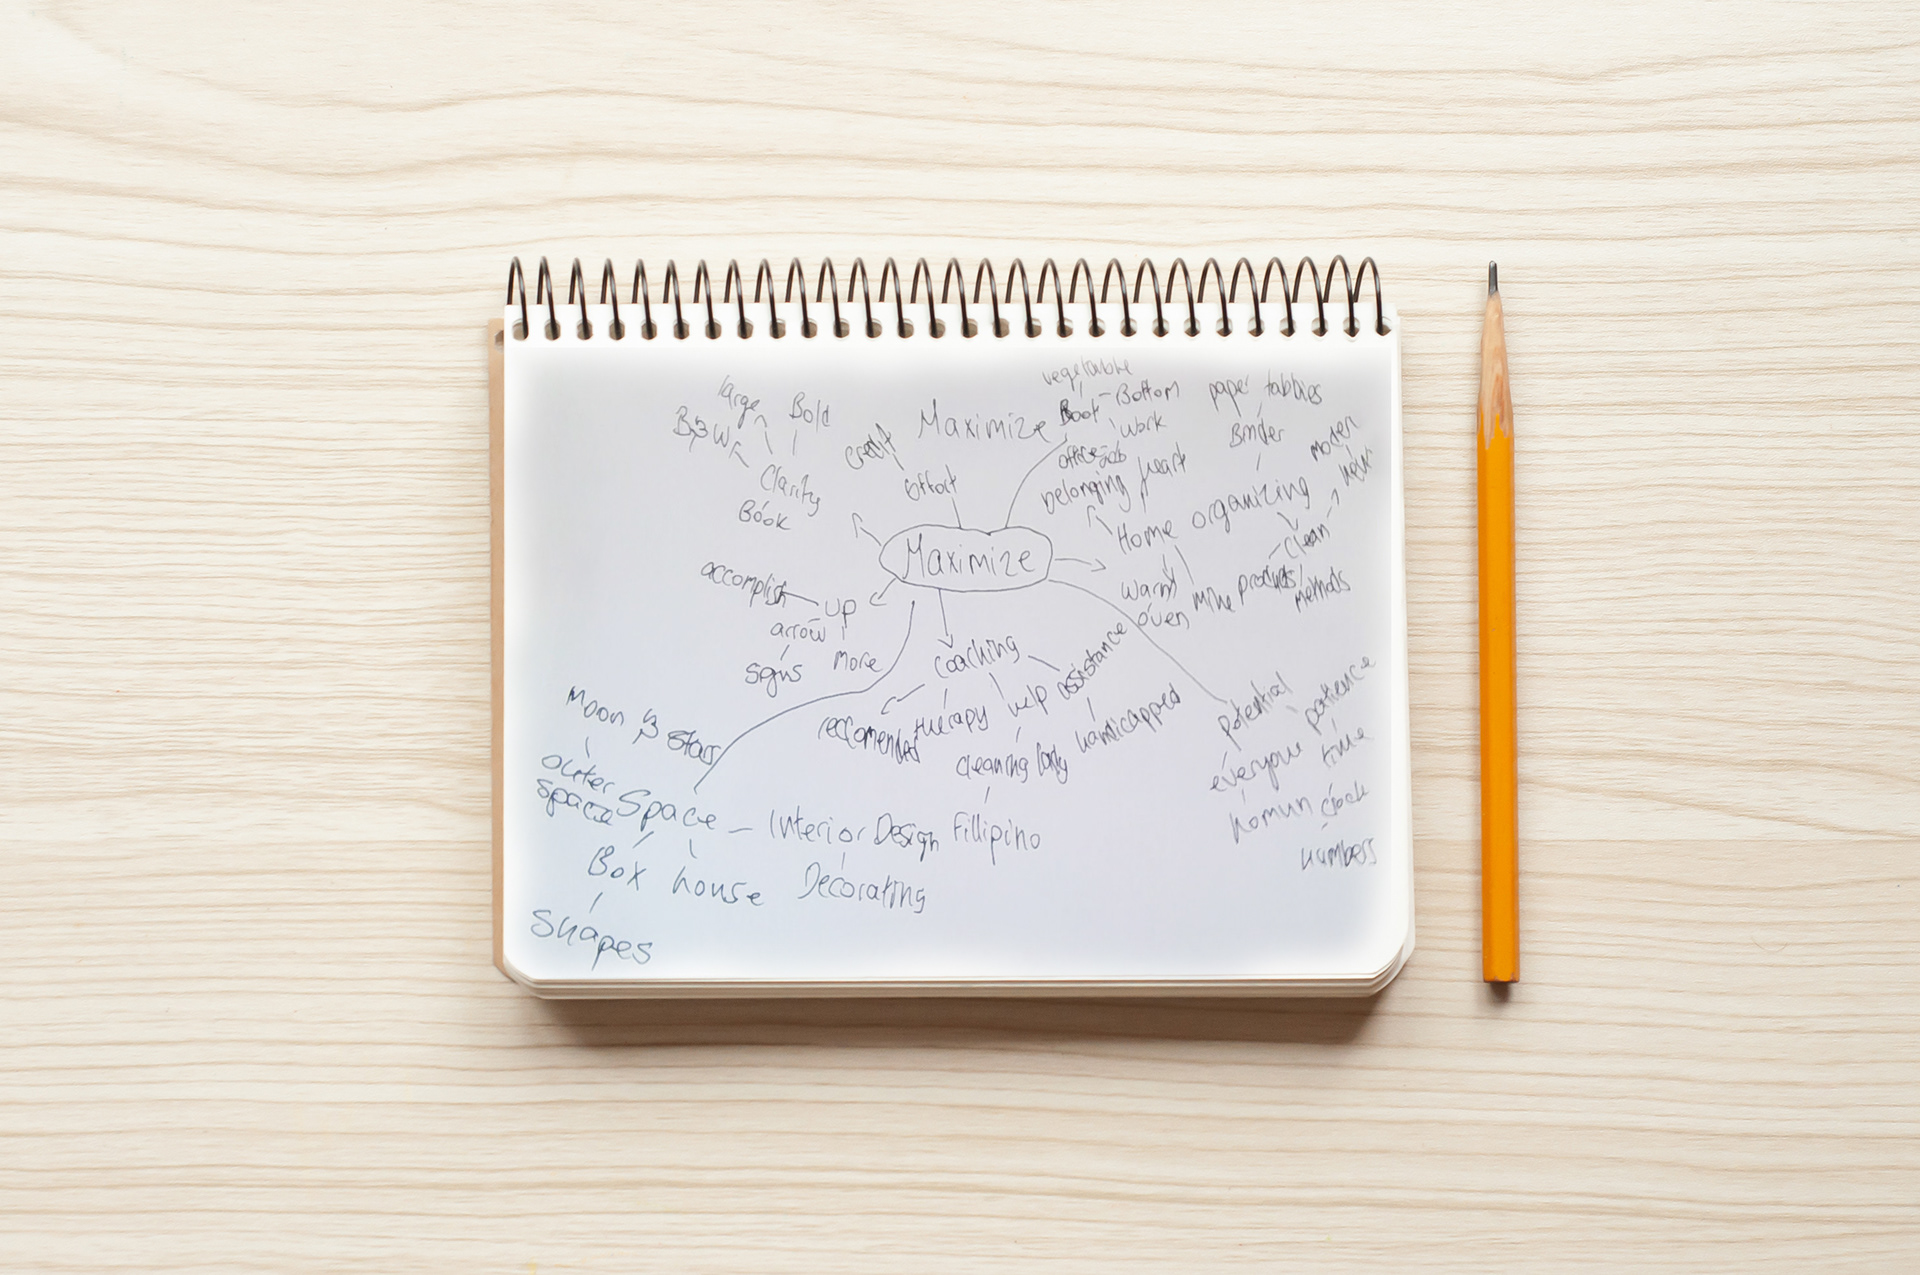 vegetable
large
Bold
Maximize
Bottom
paper tabbies
B&W
work
Binder
modern
credit
office job
new
Clarity
effort
belonging
heart
Book
Home organizing
clean
Maximize
accomplish
up
warm
mine
products
methods
oven
arrow
more
signs
coaching
assistance
potential
patience
Moon & stars
reccomended
therapy
help
handicapped
everyone
time
outer
space
Space
cleaning lady
clock
Interior Design
Fillipino
numbers
Box
house
Decorating
Shapes